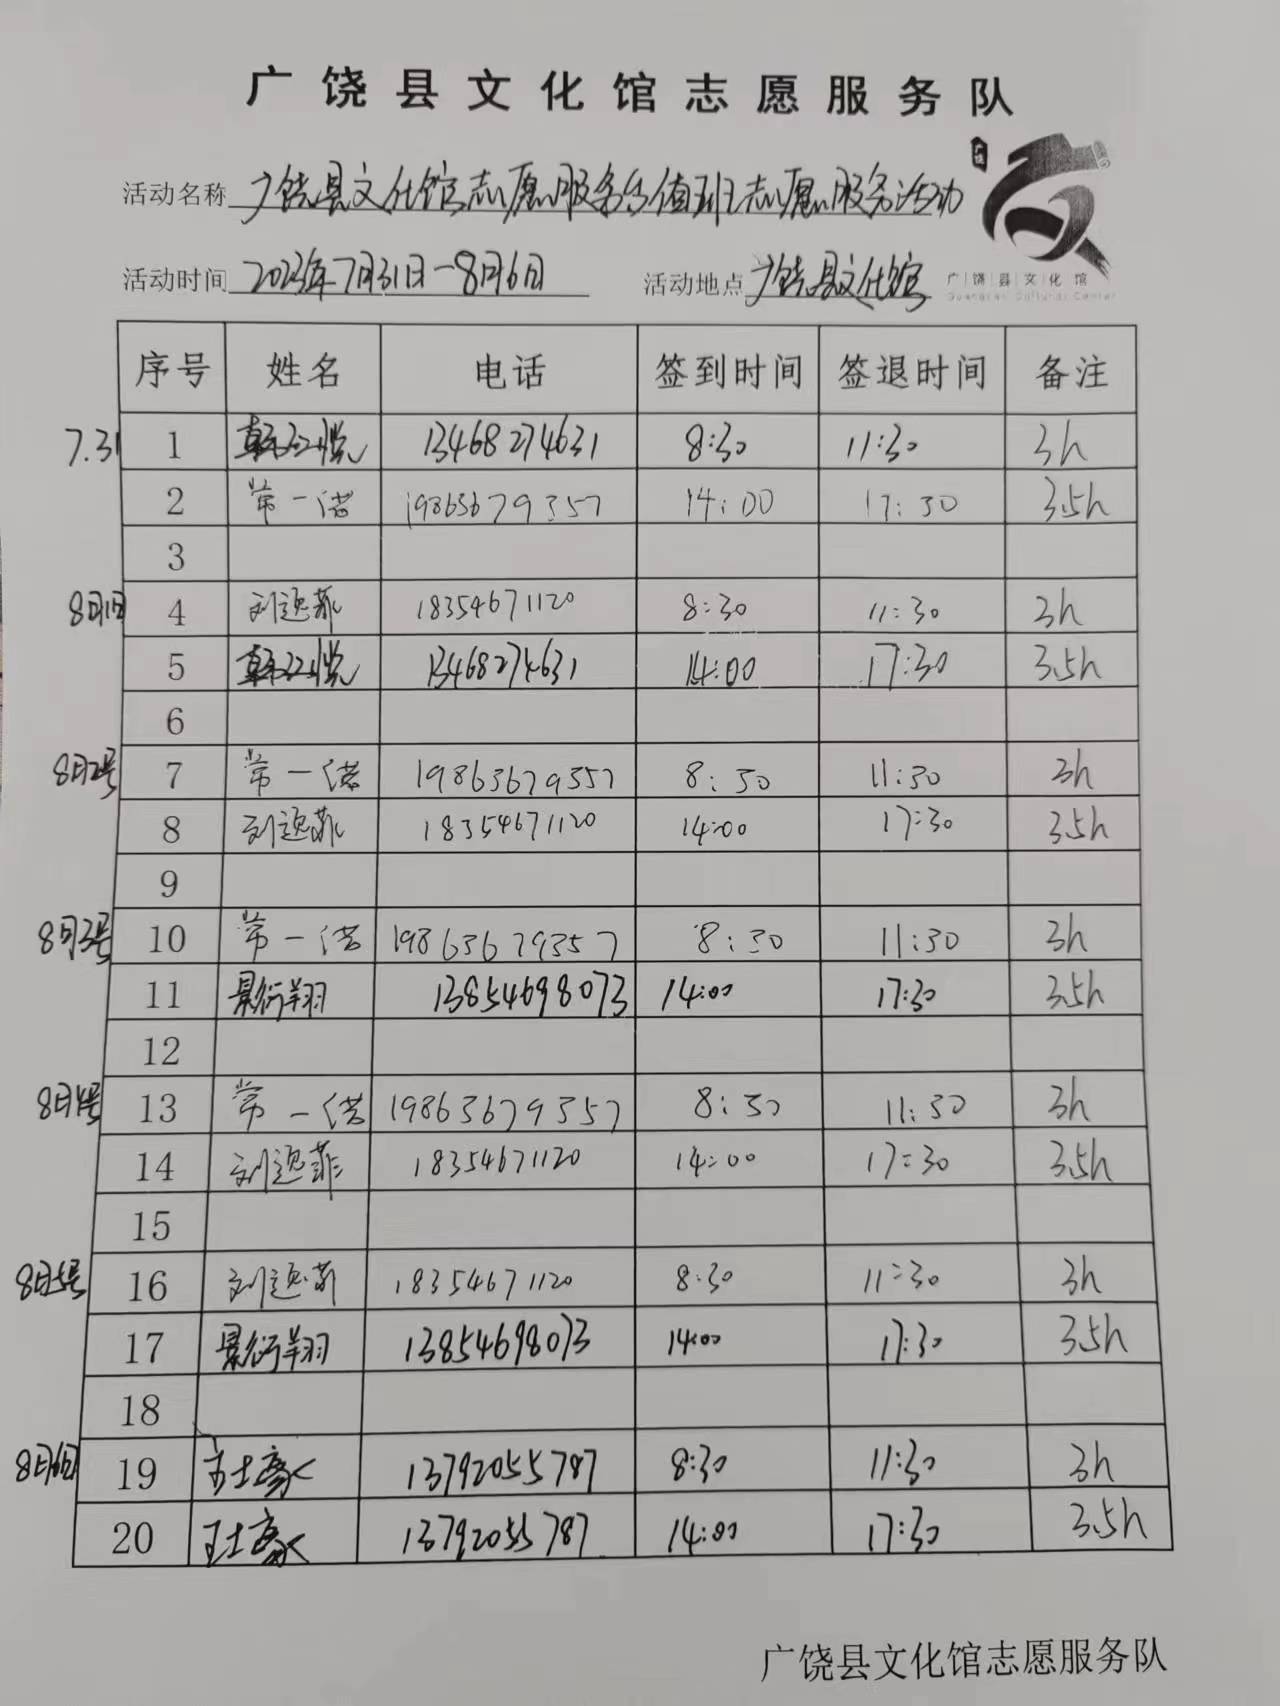 广饶县文化馆志愿服务队
活动名称 广饶县文化馆志愿服务台值班志愿服务活动
活动时间 2023年7月31日-8月6日 活动地点 广饶县文化馆
广饶
广|饶|县|文|化|馆
Guangrao Cultural Center
序号 姓名 电话 签到时间 签退时间 备注
7.31 1 13468274631 8:30 11:30 3h
2 常一诺 19863679357 14:00 17:30 3.5h
3
8月1日 4 刘逸菲 18354671120 8:30 11:30 3h
5 13468274631 14:00 17:30 3.5h
6
8月2号 7 常一诺 19863679357 8:30 11:30 3h
8 刘逸菲 18354671120 14:00 17:30 3.5h
9
8月3号 10 常一诺 19863679357 8:30 11:30 3h
11 景衍翔 13854698073 14:00 17:30 3.5h
12
8月4号 13 常一诺 19863679357 8:30 11:30 3h
14 刘逸菲 18354671120 14:00 17:30 3.5h
15
8月5号 16 刘逸菲 18354671120 8:30 11:30 3h
17 景衍翔 13854698073 14:00 17:30 3.5h
18
8月6日 19 王士豪 13792055787 8:30 11:30 3h
20 王士豪 13792055787 14:00 17:30 3.5h
广饶县文化馆志愿服务队